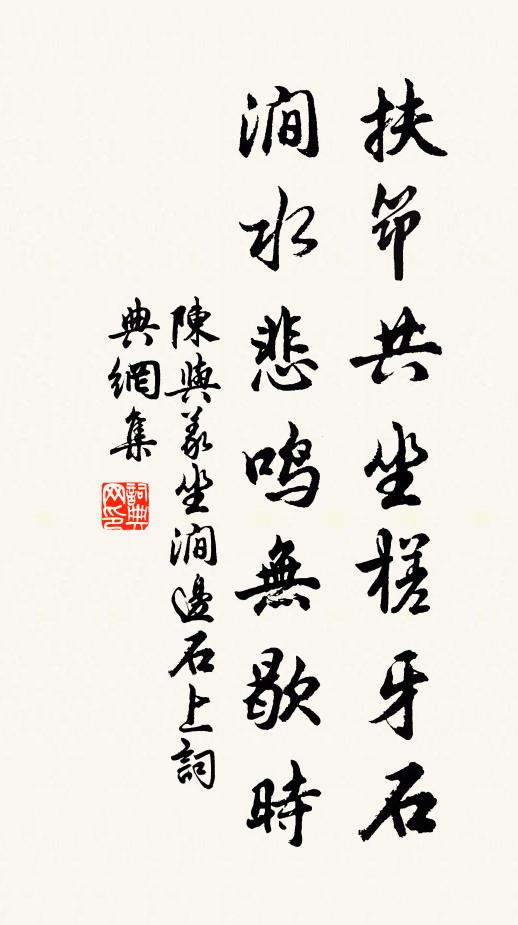 扶筇共坐槎牙石
澗水悲鳴無歇時
陳與義坐澗邊石上詞
典網集
詞典
网印